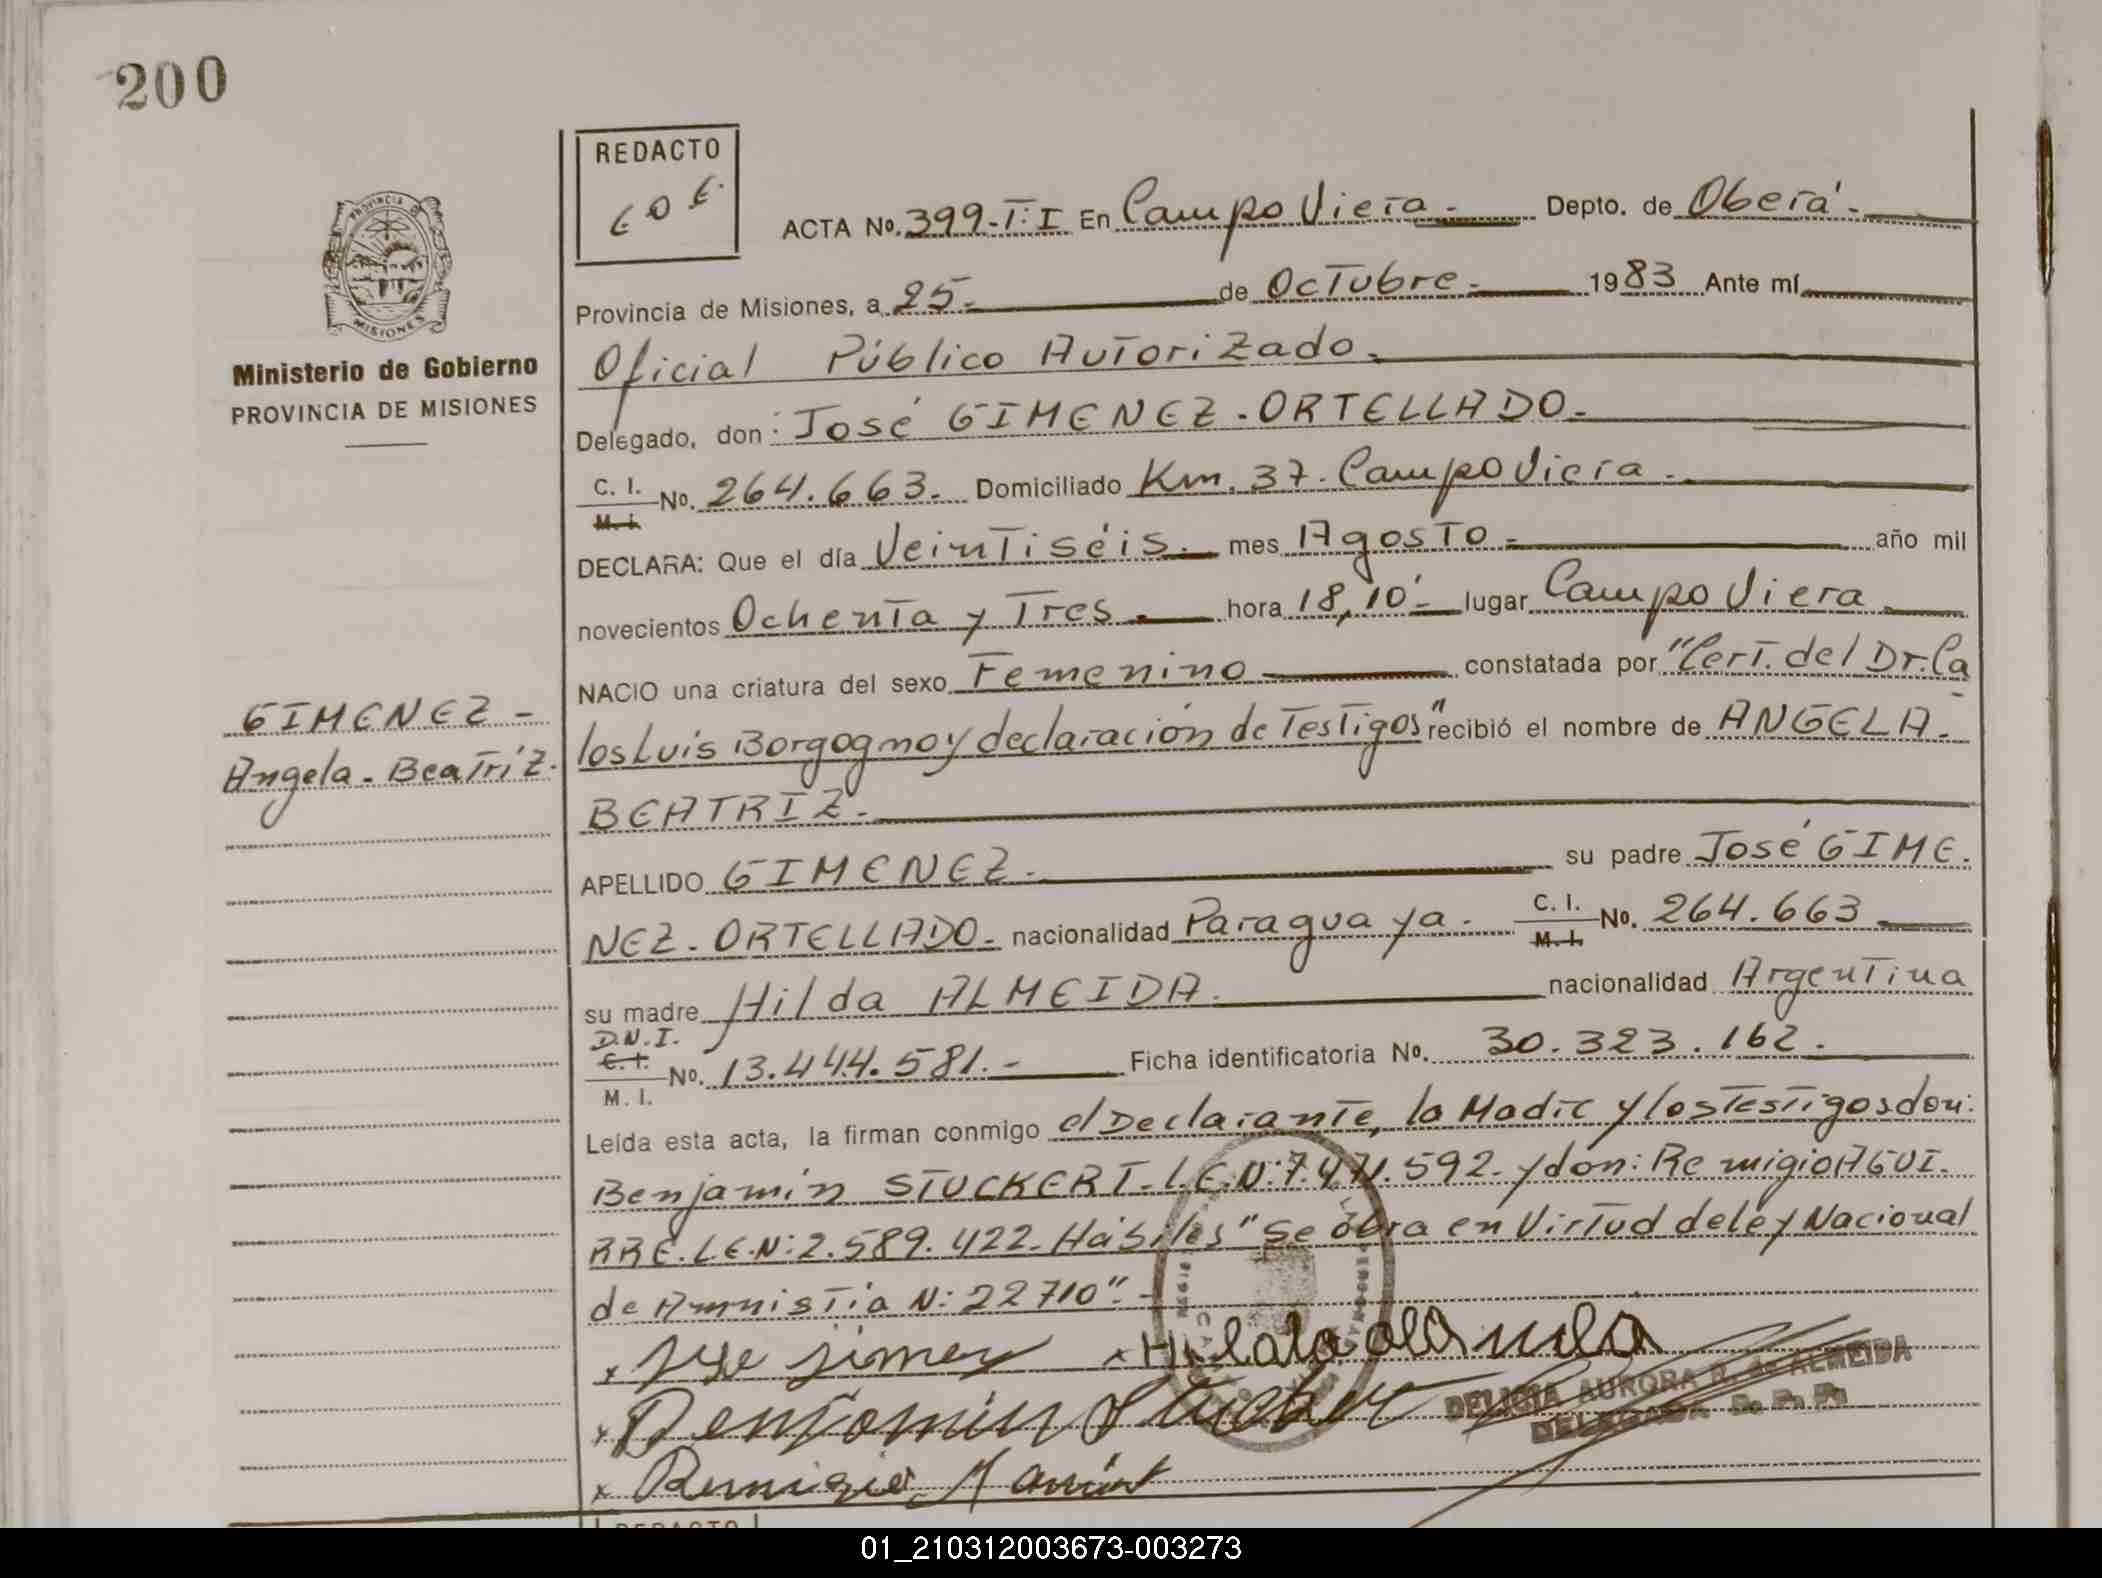 200
REDACTO
ACTA Nº. 399-T:I En Campo Viera.- Depto. de Oberá.-
Provincia de Misiones, a 25.- de Octubre.- 1983 Ante mí
PROVINCIA DE
MISIONES
Ministerio de Gobierno
PROVINCIA DE MISIONES
Oficial Público Autorizado.
Delegado, don: José GIMENEZ-ORTELLADO.-
C. I. M. I. No. 264.663.- Domiciliado Km. 37. Campo Viera.-
DECLARA: Que el día Veintiséis.- mes Agosto.- año mil
novecientos Ochenta y Tres.- hora 18,10'.- lugar Campo Viera
NACIO una criatura del sexo Femenino constatada por "Cert. del Dr. Ca
GIMENEZ-
Angela-Beatriz.
los Luis Borgogno y declaración de Testigos" recibió el nombre de ANGELA.
BEATRIZ.-
APELLIDO GIMENEZ.- su padre José GIME.
NEZ-ORTELLADO.- nacionalidad Paraguaya.- C. I. M. I. No. 264.663
su madre Hilda ALMEIDA. nacionalidad Argentina
D.N.I. C. I. M. I. No. 13.444.581.- Ficha identificatoria Nº. 30.323.162.
Leída esta acta, la firman conmigo el Declarante, la Madre y los Testigos don:
Benjamín STUCKERT. L.E.N: 7.471.592. y don: Remigio AGUI.
RRE. L.E.N: 2.589.422. Hábiles "Se obra en Virtud de ley Nacional
de Amnistía N: 22710".-
x Jose Jimenez
x Benjamin
x Remigio
DELICIA AURORA R. de ALMEIDA
DELEGADA R. P. P.
REDACTO
01_210312003673-003273